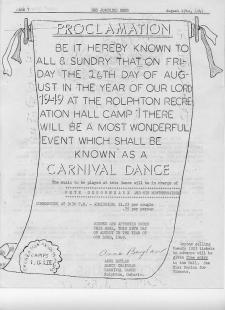 PAGE 7 THE JOACHIMS NEWS August 19th, 1949
PROCLAMATION
BE IT HEREBY KNOWN TO
ALL & SUNDRY THAT ON FRI-
DAY THE 26TH DAY OF AUG-
UST IN THE YEAR OF OUR LORD
1949 AT THE ROLPHTON RECRE-
ATION HALL CAMP 1 THERE
WILL BE A MOST WONDERFUL
EVENT WHICH SHALL BE
KNOWN AS A
CARNIVAL DANCE
The music to be played at this Dance will be in charge of
PETE
COMMENCING AT 9:00 P.M. - ADMISSION: $1.25 per couple
.75 per person
SIGNED AND ATTESTED UNDER
THIS SEAL, THIS 19TH DAY
OF AUGUST IN THE YEAR OF
OUR LORD, 1949.
DANCE CHAIRMAN
CARNIVAL DANCE
Rolphton, Ontario.
CAMPS
Anyone selling
tickets
in advance will be
given free entry
to the Hall. See
for
Tickets.